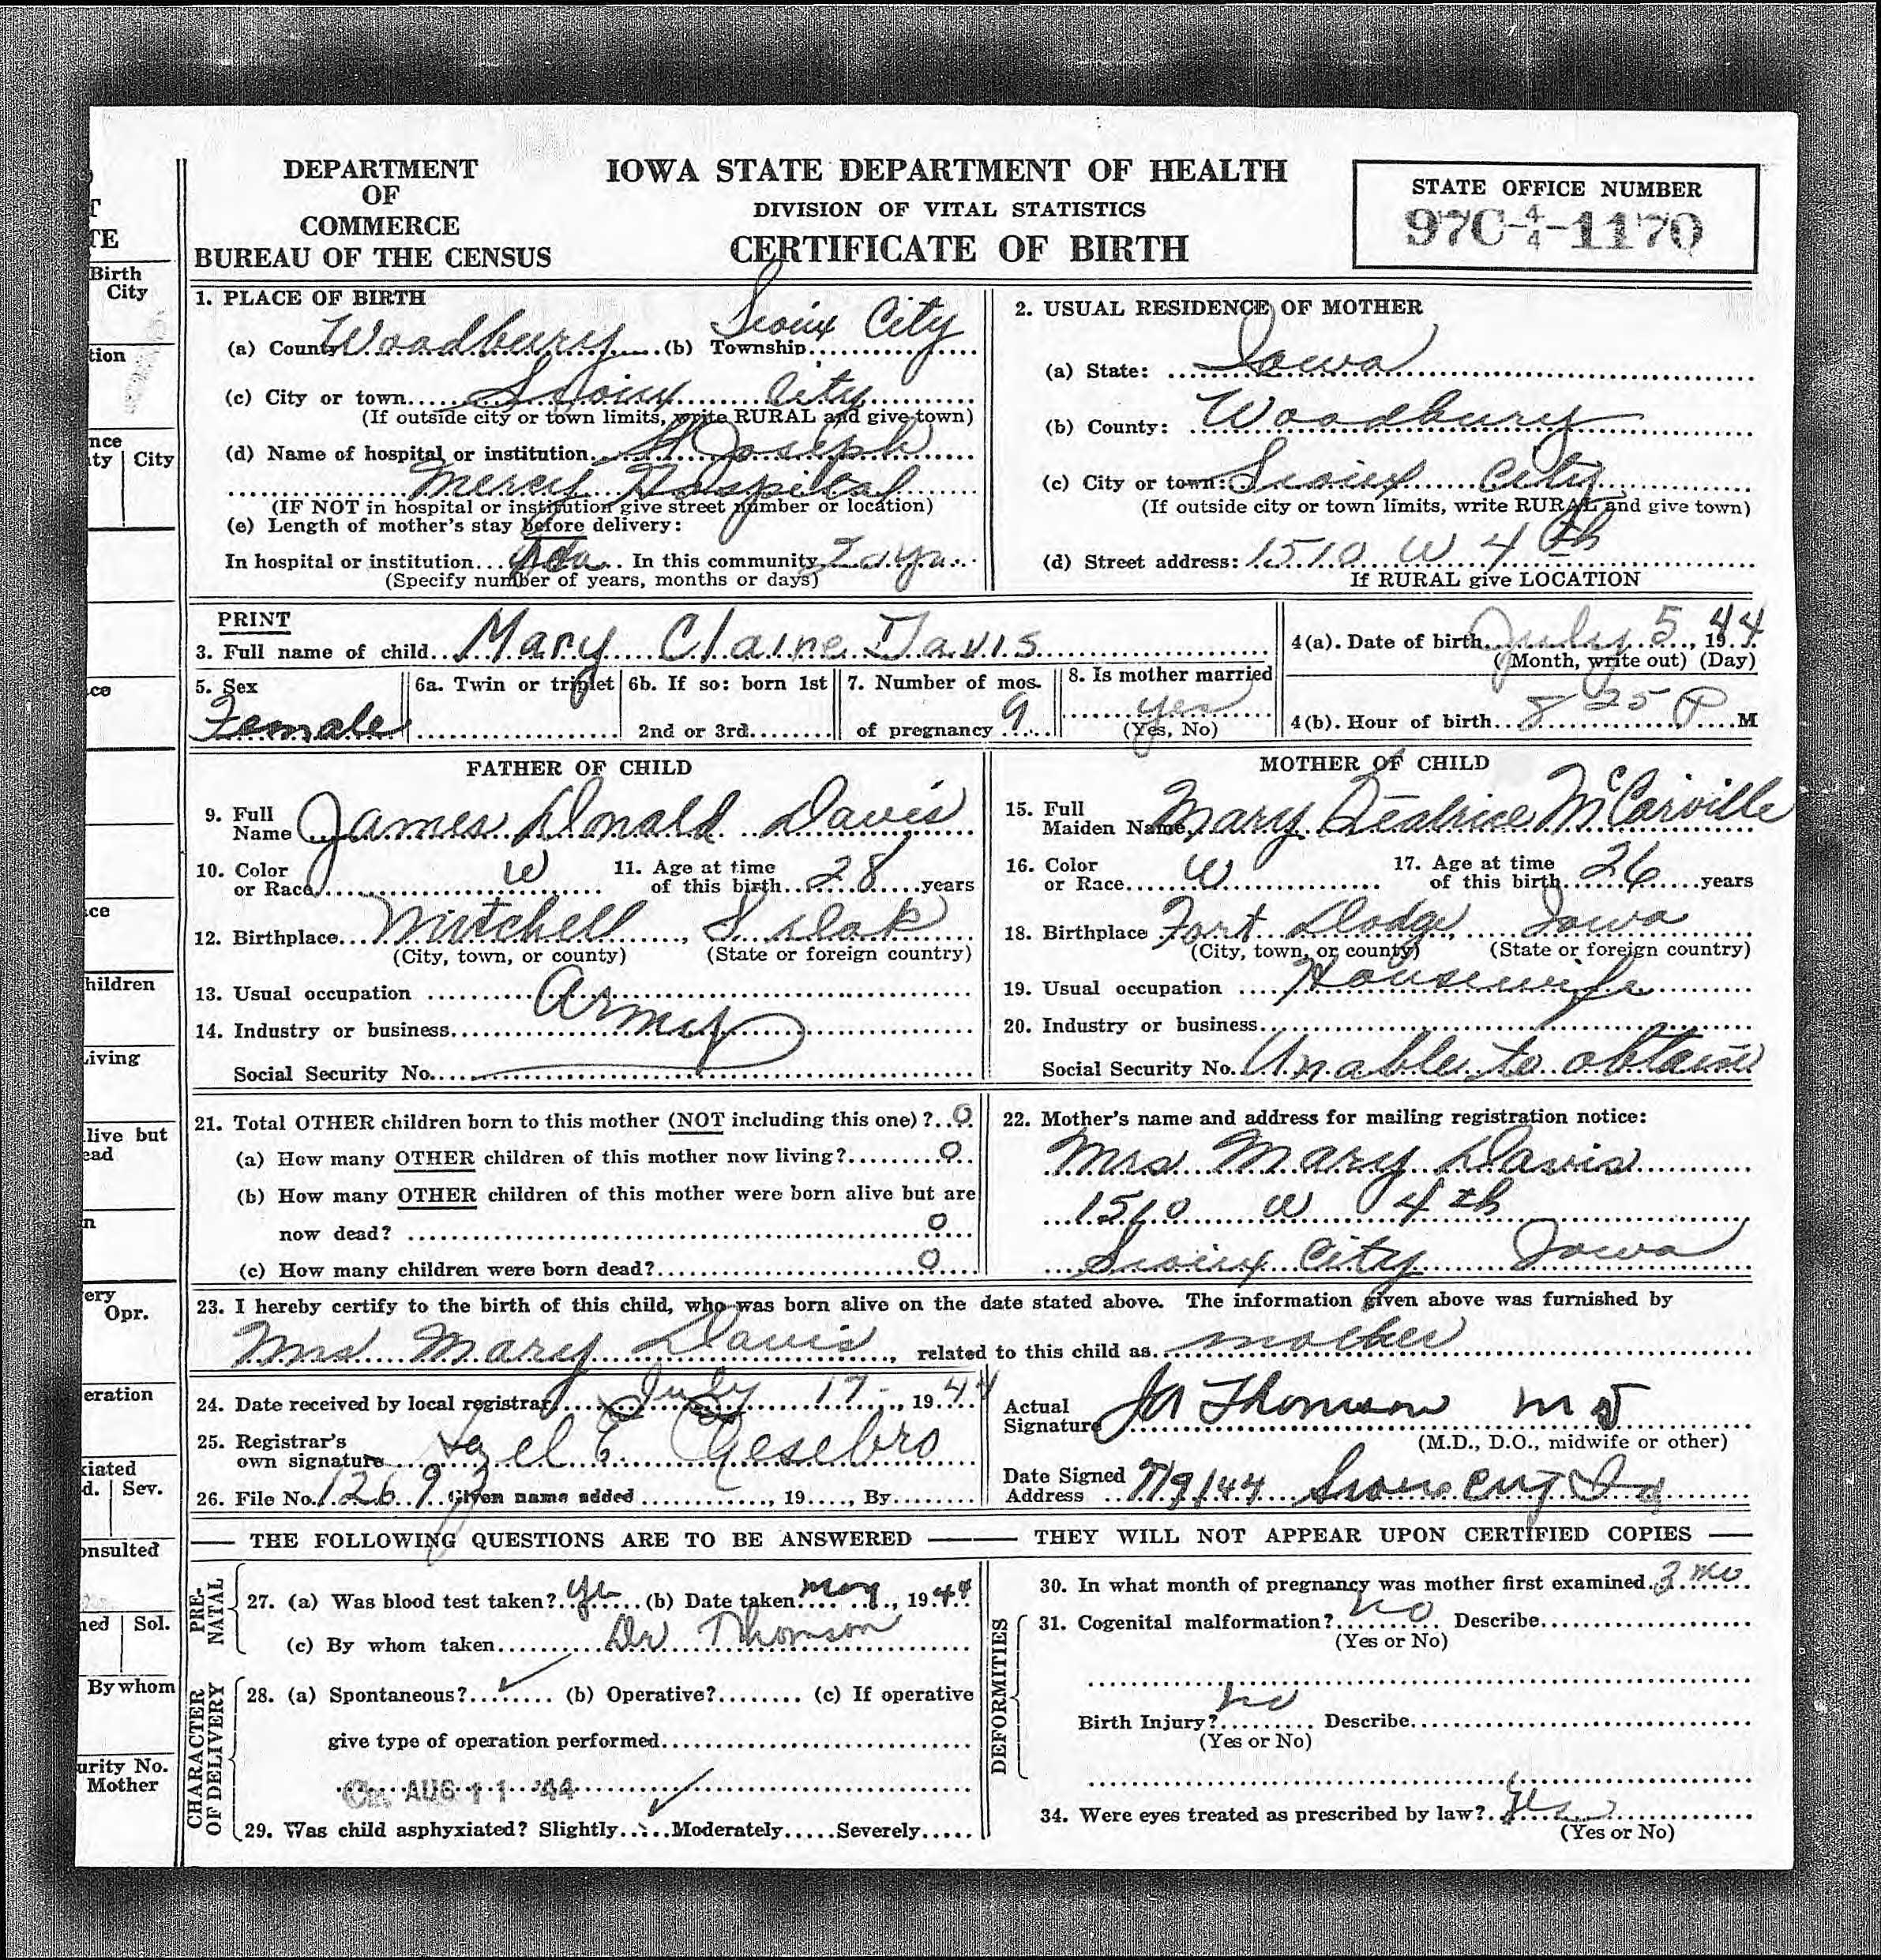 DEPARTMENT
OF
COMMERCE
BUREAU OF THE CENSUS
IOWA STATE DEPARTMENT OF HEALTH
DIVISION OF VITAL STATISTICS
CERTIFICATE OF BIRTH
STATE OFFICE NUMBER
97C-4/4-1170
1. PLACE OF BIRTH
(a) County Woodbury (b) Township Sioux City
(c) City or town Sioux City
(If outside city or town limits, write RURAL and give town)
(d) Name of hospital or institution St Joseph
Mercy Hospital
(IF NOT in hospital or institution give street number or location)
(e) Length of mother's stay before delivery:
In hospital or institution In this community
(Specify number of years, months or days)
2. USUAL RESIDENCE OF MOTHER
(a) State: Iowa
(b) County: Woodbury
(c) City or town: Sioux City
(If outside city or town limits, write RURAL and give town)
(d) Street address: 1510 W 4th
If RURAL give LOCATION
PRINT
3. Full name of child Mary Claine Davis
4(a). Date of birth July 5, 1944
(Month, write out) (Day)
5. Sex
Female
6a. Twin or triplet
6b. If so: born 1st
2nd or 3rd
7. Number of mos.
of pregnancy 9
8. Is mother married
yes
(Yes, No)
4(b). Hour of birth 8 25 P M
FATHER OF CHILD
9. Full
Name James Donald Davis
10. Color
or Race W
11. Age at time
of this birth 28 years
12. Birthplace Mitchell, S Dak
(City, town, or county) (State or foreign country)
13. Usual occupation
Army
14. Industry or business
Social Security No.
MOTHER OF CHILD
15. Full
Maiden Name Mary Beatrice McCarville
16. Color
or Race W
17. Age at time
of this birth 26 years
18. Birthplace Fort Dodge, Iowa
(City, town, or county) (State or foreign country)
19. Usual occupation Housewife
20. Industry or business
Social Security No. Unable to obtain
21. Total OTHER children born to this mother (NOT including this one)? 0
(a) How many OTHER children of this mother now living? 0
(b) How many OTHER children of this mother were born alive but are
now dead? 0
(c) How many children were born dead? 0
22. Mother's name and address for mailing registration notice:
Mrs Mary Davis
1510 W 4th
Sioux City Iowa
23. I hereby certify to the birth of this child, who was born alive on the date stated above. The information given above was furnished by
Mrs Mary Davis, related to this child as mother
24. Date received by local registrar July 17, 1944
25. Registrar's
own signature Hazel E
26. File No. 1269 Given name added , 19 , By
Actual
Signature JA Thomson MD
(M.D., D.O., midwife or other)
Date Signed
Address 7/9/44 Sioux City Ia
THE FOLLOWING QUESTIONS ARE TO BE ANSWERED — THEY WILL NOT APPEAR UPON CERTIFIED COPIES
PRE-
NATAL
27. (a) Was blood test taken? yes (b) Date taken , 1944
(c) By whom taken Dr Thomson
CHARACTER
OF DELIVERY
28. (a) Spontaneous? ✓ (b) Operative? (c) If operative
give type of operation performed
AUG 11 '44
29. Was child asphyxiated? Slightly Moderately Severely
DEFORMITIES
30. In what month of pregnancy was mother first examined 3 mo
31. Cogenital malformation? no Describe
(Yes or No)
Birth Injury? no Describe
(Yes or No)
34. Were eyes treated as prescribed by law? Yes
(Yes or No)
TE
Birth
City
tion
nce
ty City
ce
ce
hildren
Living
live but
ead
n
ery
Opr.
eration
xiated
d. Sev.
onsulted
ned Sol.
By whom
urity No.
Mother